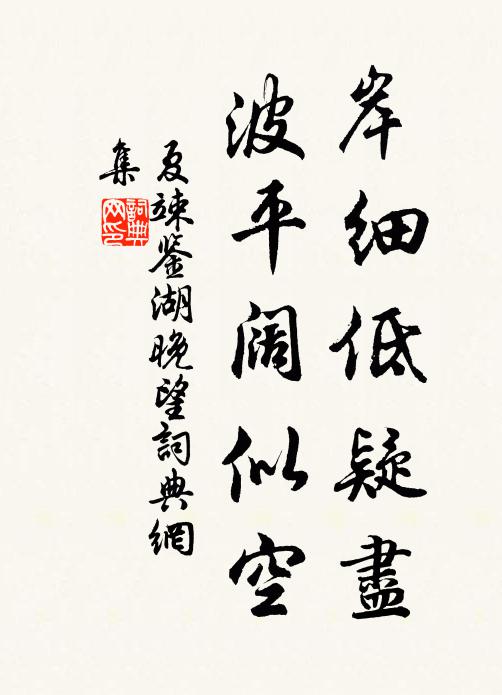 岸细低疑盡
波平阔似空
夏竦鉴湖晚望詞典網
集
詞典网印